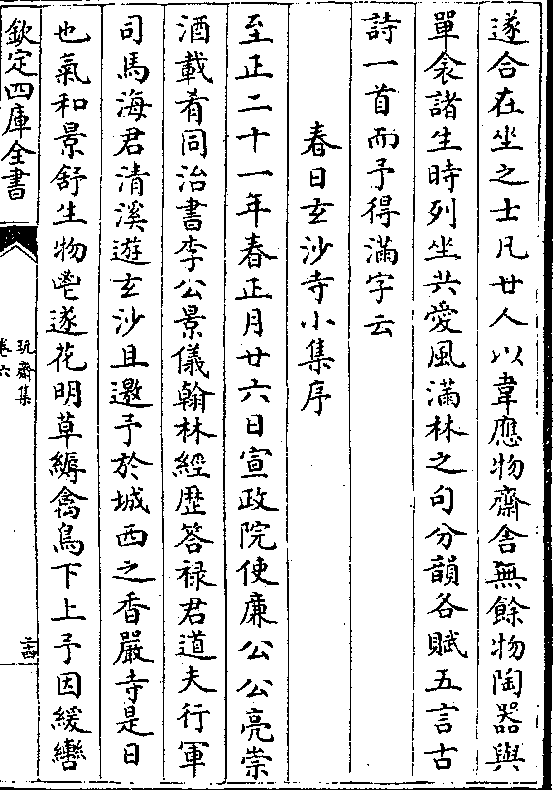 遂合在坐之士凡廿人以韋應物齋舍無餘物陶器與
單衾諸生時列坐共愛風滿林之句分韻各賦五言古
詩一首而予得滿字云
春日玄沙寺小集序
至正二十一年春正月廿六日宣政院使廉公公亮崇
酒載肴同治書李公景儀翰林經歷答禄君道夫行軍
司馬海君清溪遊玄沙且邀予於城西之香嚴寺是日
也氣和景舒生物鬯遂花明草縟禽鳥下上予因緩轡
欽定四庫全書
玩齋集
卷六